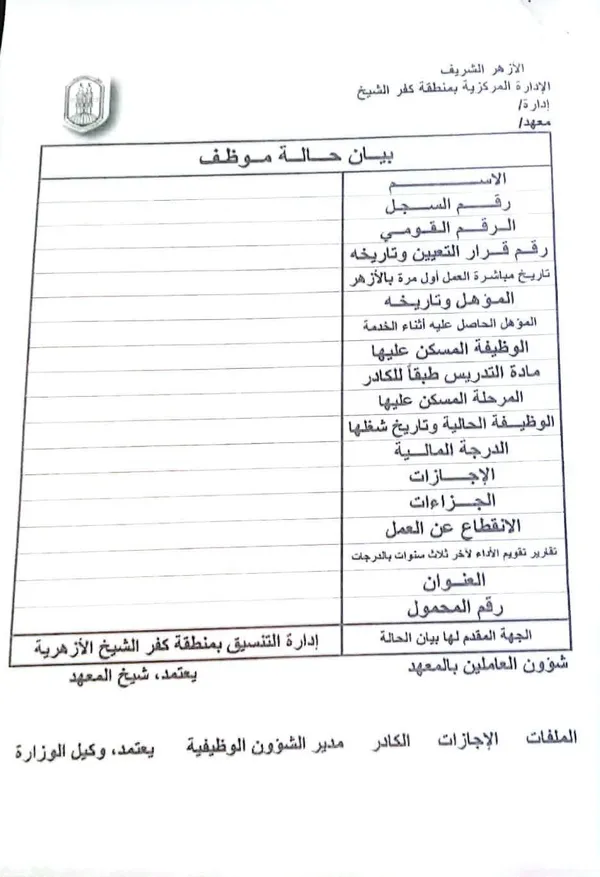 الأزهر الشريف
الإدارة المركزية بمنطقة كفر الشيخ
إدارة/
معهد/
بيـان حـالـة مـوظـف
الاســـــــم
رقـــم السـجـل
الـرقـم القـومـي
رقـم قـرار التعيين وتاريخه
تاريخ مباشرة العمل أول مرة بالأزهر
المـؤهـل وتاريـخـه
المؤهل الحاصل عليه أثناء الخدمة
الوظيفة المسكن عليها
مادة التدريس طبقاً للكادر
المرحلة المسكن عليها
الوظيـفـة الحالية وتاريخ شغلها
الدرجة المالـــية
الإجــــازات
الجــــزاءات
الانقطاع عن العمل
تقارير تقويم الأداء لآخر ثلاث سنوات بالدرجات
العنـــوان
رقم المحمول
الجهة المقدم لها بيان الحالة إدارة التنسيق بمنطقة كفر الشيخ الأزهرية
شؤون العاملين بالمعهد يعتمد، شيخ المعهد
الملفات الإجازات الكادر مدير الشؤون الوظيفية يعتمد، وكيل الوزارة